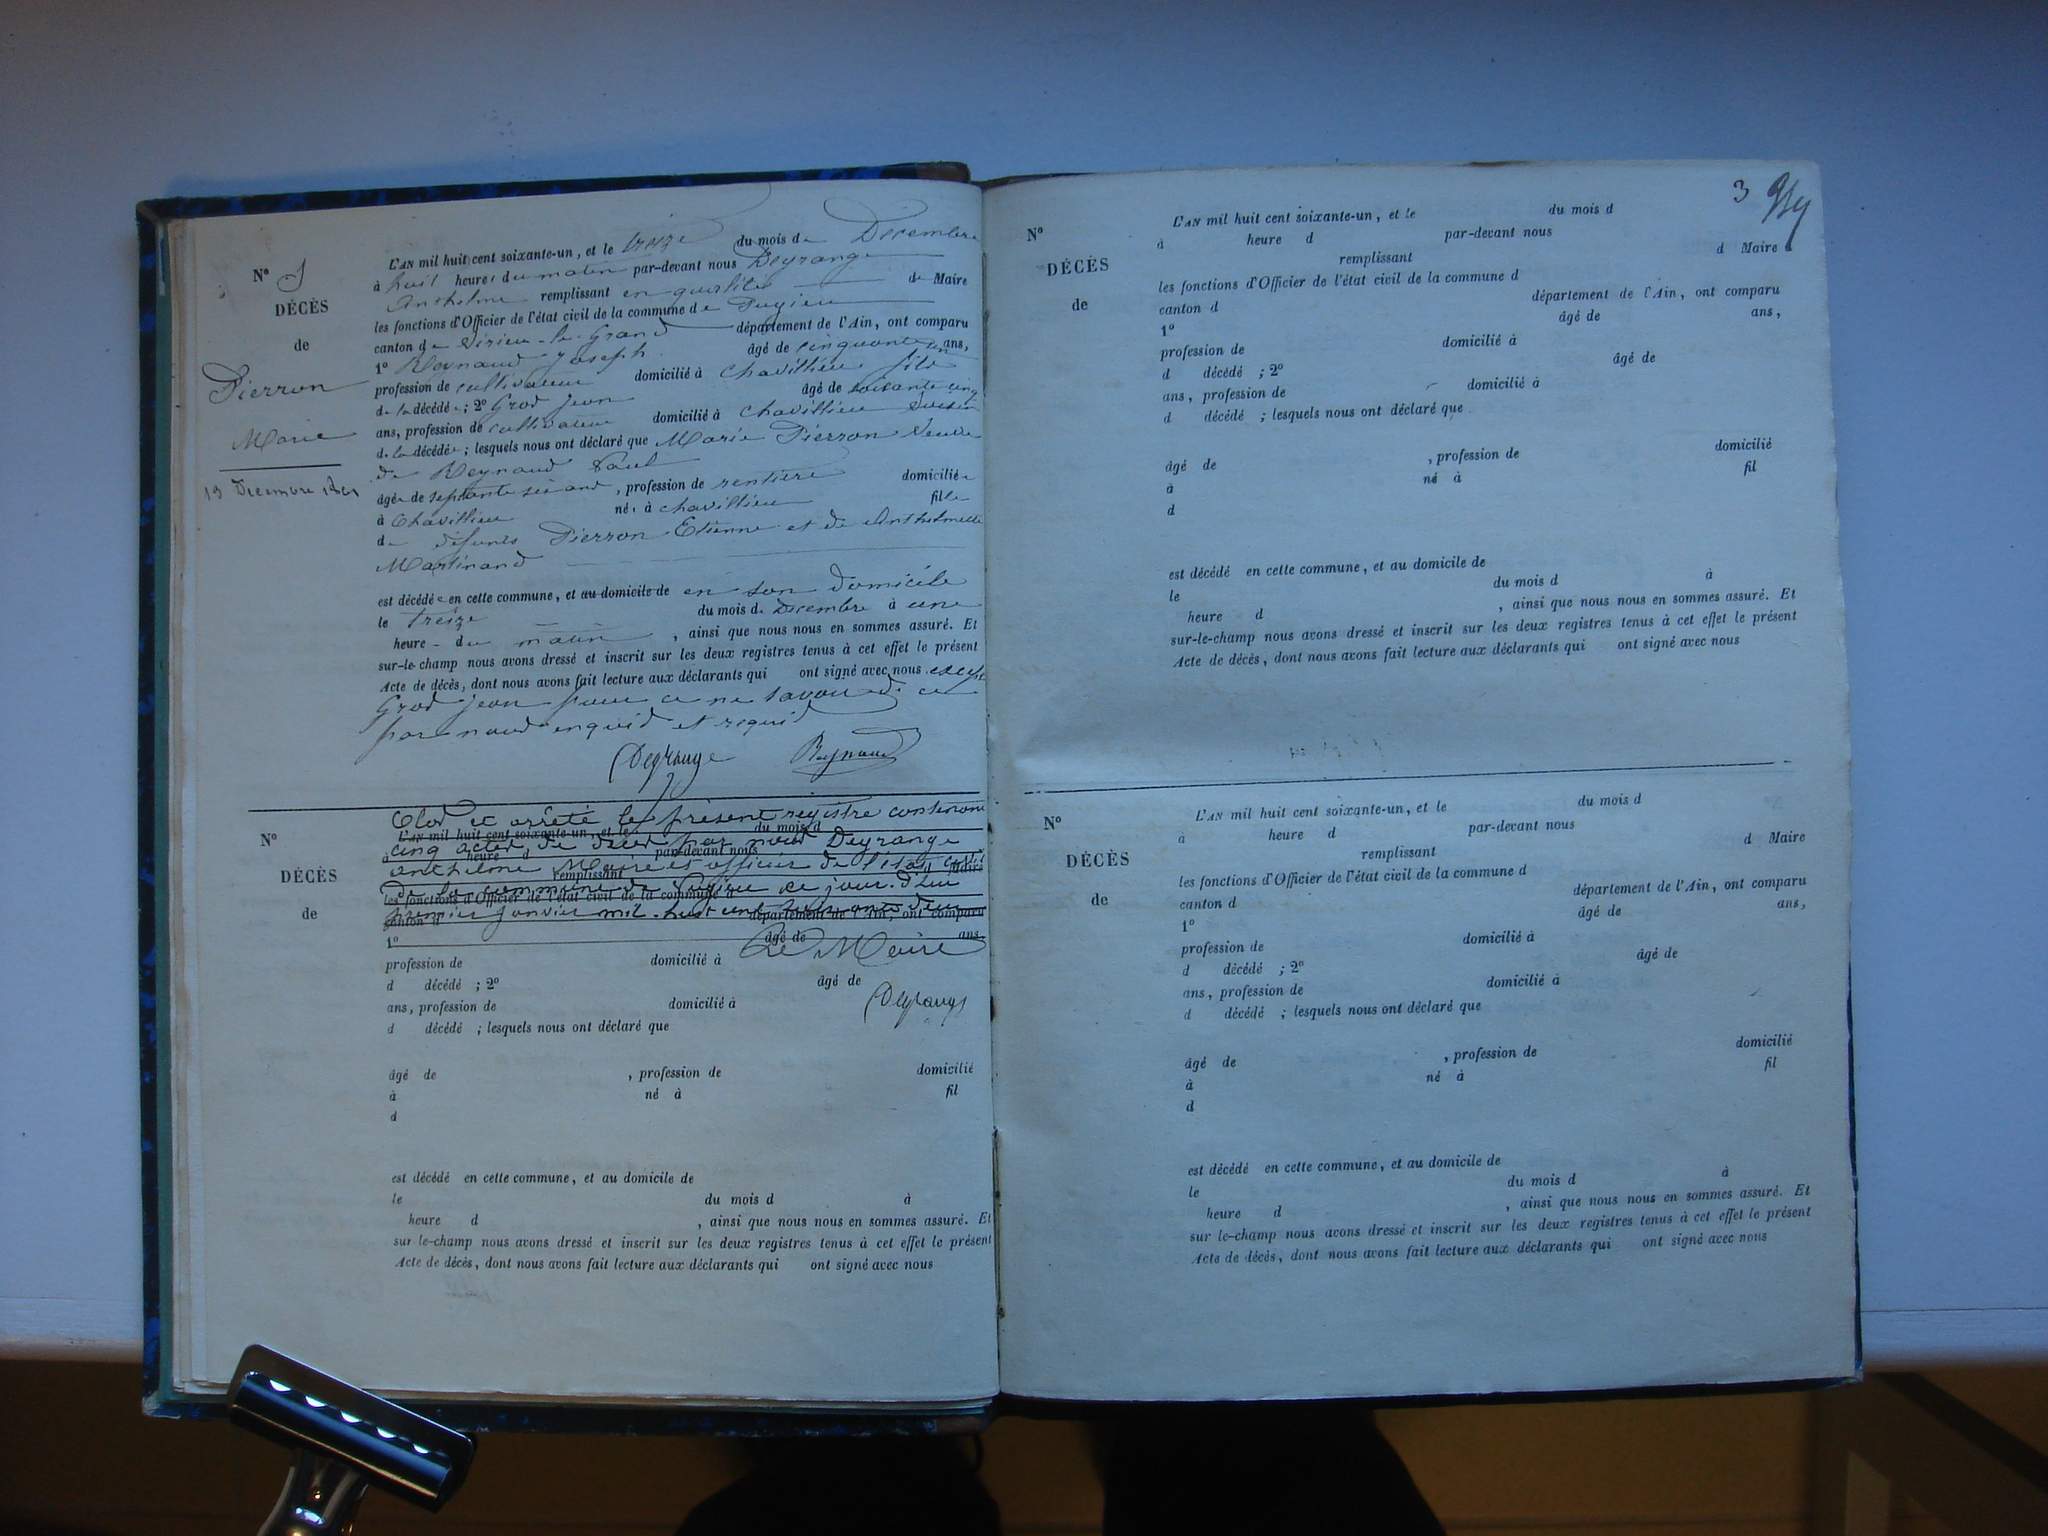 N° 5
DÉCÈS
de
Pierron
Marie
13 Decembre 1861
L'AN mil huit cent soixante-un, et le treize du mois de Décembre
à huit heures du matin par-devant nous Degrange
Anthelme remplissant en qualité de Maire
les fonctions d'Officier de l'état civil de la commune de Pugieu
canton de Virieu-le-Grand département de l'Ain, ont comparu
1° Reynaud Joseph âgé de cinquante un ans,
profession de cultivateur domicilié à Chavillieu fils
de la décédée ; 2° Grod Jean âgé de soixante cinq
ans, profession de cultivateur domicilié à Chavillieu voisin
de la décédée ; lesquels nous ont déclaré que Marie Pierron veuve
de Reynaud Paul
âgée de septante six ans, profession de rentière domiciliée
à Chavillieu née à Chavillieu fille
de défunts Pierron Etienne et de Anthelmette
Martinand
est décédée en cette commune, et au domicile de en son domicile
le treize du mois de Decembre à une
heure du matin, ainsi que nous nous en sommes assuré. Et
sur-le-champ nous avons dressé et inscrit sur les deux registres tenus à cet effet le présent
Acte de décès, dont nous avons fait lecture aux déclarants qui ont signé avec nous excepté
Grod Jean pour ce ne savoir de ce
par nous enquis et requis
Degrange Reynaud
N°
DÉCÈS
de
Clos et arrêté le présent registre contenant
L'AN mil huit cent soixante-un, et le du mois d
cinq actes de décès par nous Degrange
à heure d par-devant nous
anthelme Maire et officier de l'état civil
remplissant d Maire
de la commune de Pugieu ce jour d'hui
les fonctions d'Officier de l'état civil de la commune d
premier janvier mil huit cent soixante deux
canton d département de l'Ain, ont comparu
1° âgé de ans,
Le Maire
profession de domicilié à
d décédé ; 2° âgé de
Degrange
ans, profession de domicilié à
d décédé ; lesquels nous ont déclaré que
âgé de , profession de domicilié
à né à fil
d
est décédé en cette commune, et au domicile de
le du mois d à
heure d , ainsi que nous nous en sommes assuré. Et
sur le-champ nous avons dressé et inscrit sur les deux registres tenus à cet effet le présent
Acte de décès, dont nous avons fait lecture aux déclarants qui ont signé avec nous
3
N°
DÉCÈS
de
L'AN mil huit cent soixante-un, et le du mois d
à heure d par-devant nous
remplissant d Maire
les fonctions d'Officier de l'état civil de la commune d
canton d département de l'Ain, ont comparu
1° âgé de ans,
profession de domicilié à
d décédé ; 2° âgé de
ans, profession de domicilié à
d décédé ; lesquels nous ont déclaré que
âgé de , profession de domicilié
à né à fil
d
est décédé en cette commune, et au domicile de
le du mois d à
heure d , ainsi que nous nous en sommes assuré. Et
sur-le-champ nous avons dressé et inscrit sur les deux registres tenus à cet effet le présent
Acte de décès, dont nous avons fait lecture aux déclarants qui ont signé avec nous
N°
DÉCÈS
de
L'AN mil huit cent soixante-un, et le du mois d
à heure d par-devant nous
remplissant d Maire
les fonctions d'Officier de l'état civil de la commune d
canton d département de l'Ain, ont comparu
1° âgé de ans,
profession de domicilié à
d décédé ; 2° âgé de
ans, profession de domicilié à
d décédé ; lesquels nous ont déclaré que
âgé de , profession de domicilié
à né à fil
d
est décédé en cette commune, et au domicile de
le du mois d à
heure d , ainsi que nous nous en sommes assuré. Et
sur-le-champ nous avons dressé et inscrit sur les deux registres tenus à cet effet le présent
Acte de décès, dont nous avons fait lecture aux déclarants qui ont signé avec nous